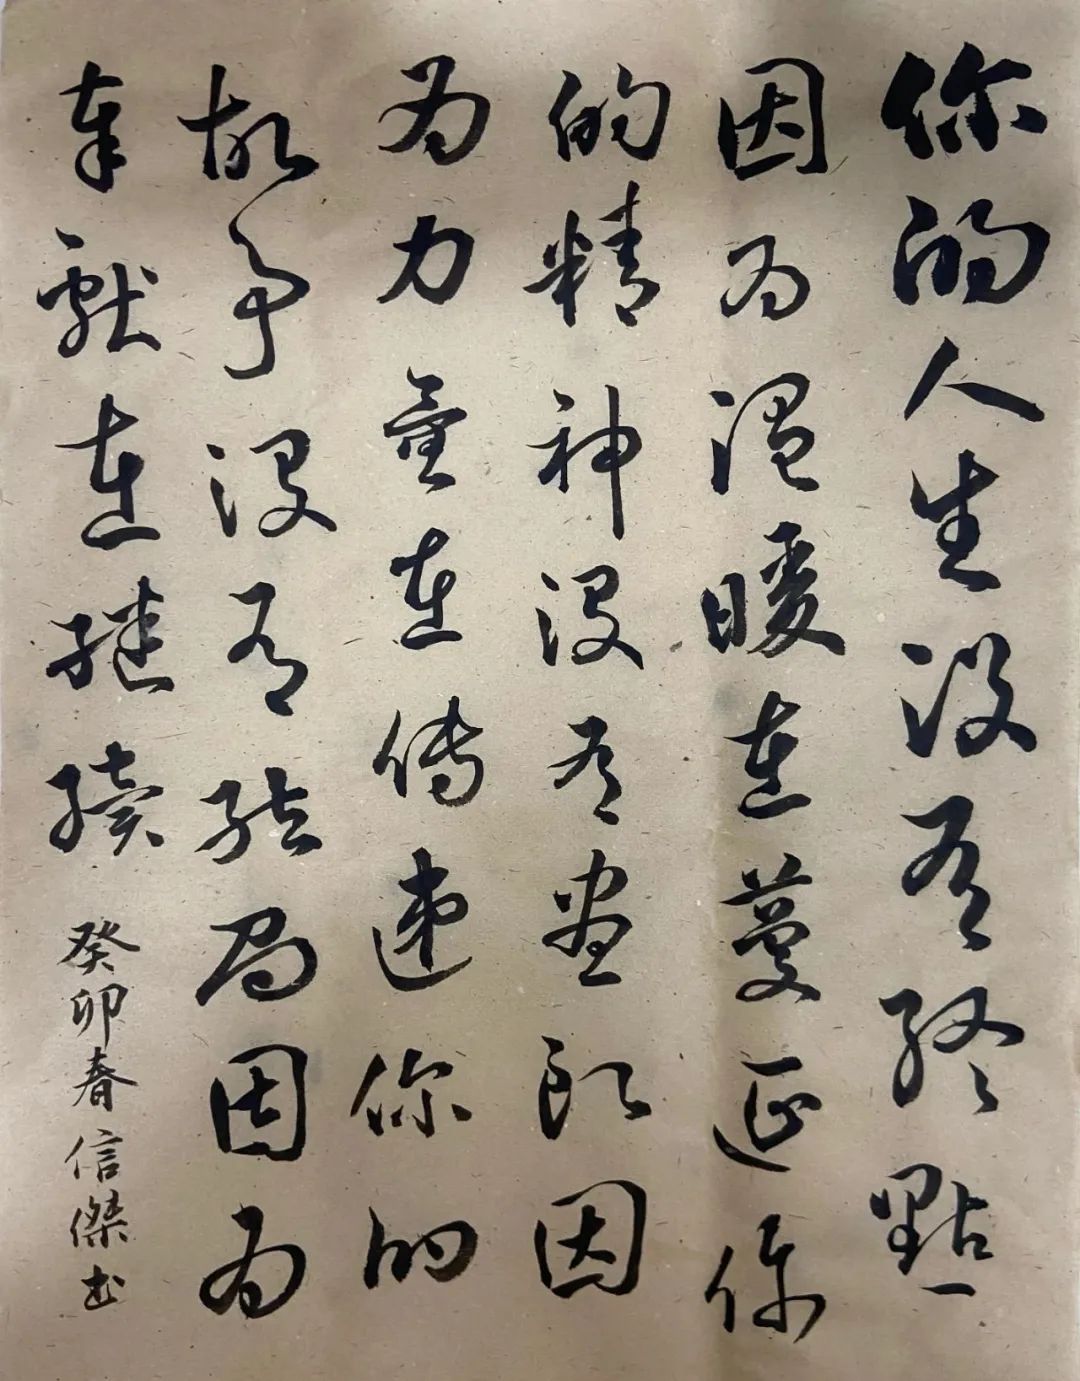 你的人生没有终點
因为温暖在蔓延你
的精神没有尽头因
为力量在传递你的
故事没有结局因为
奉献在继续
癸卯春信傑书